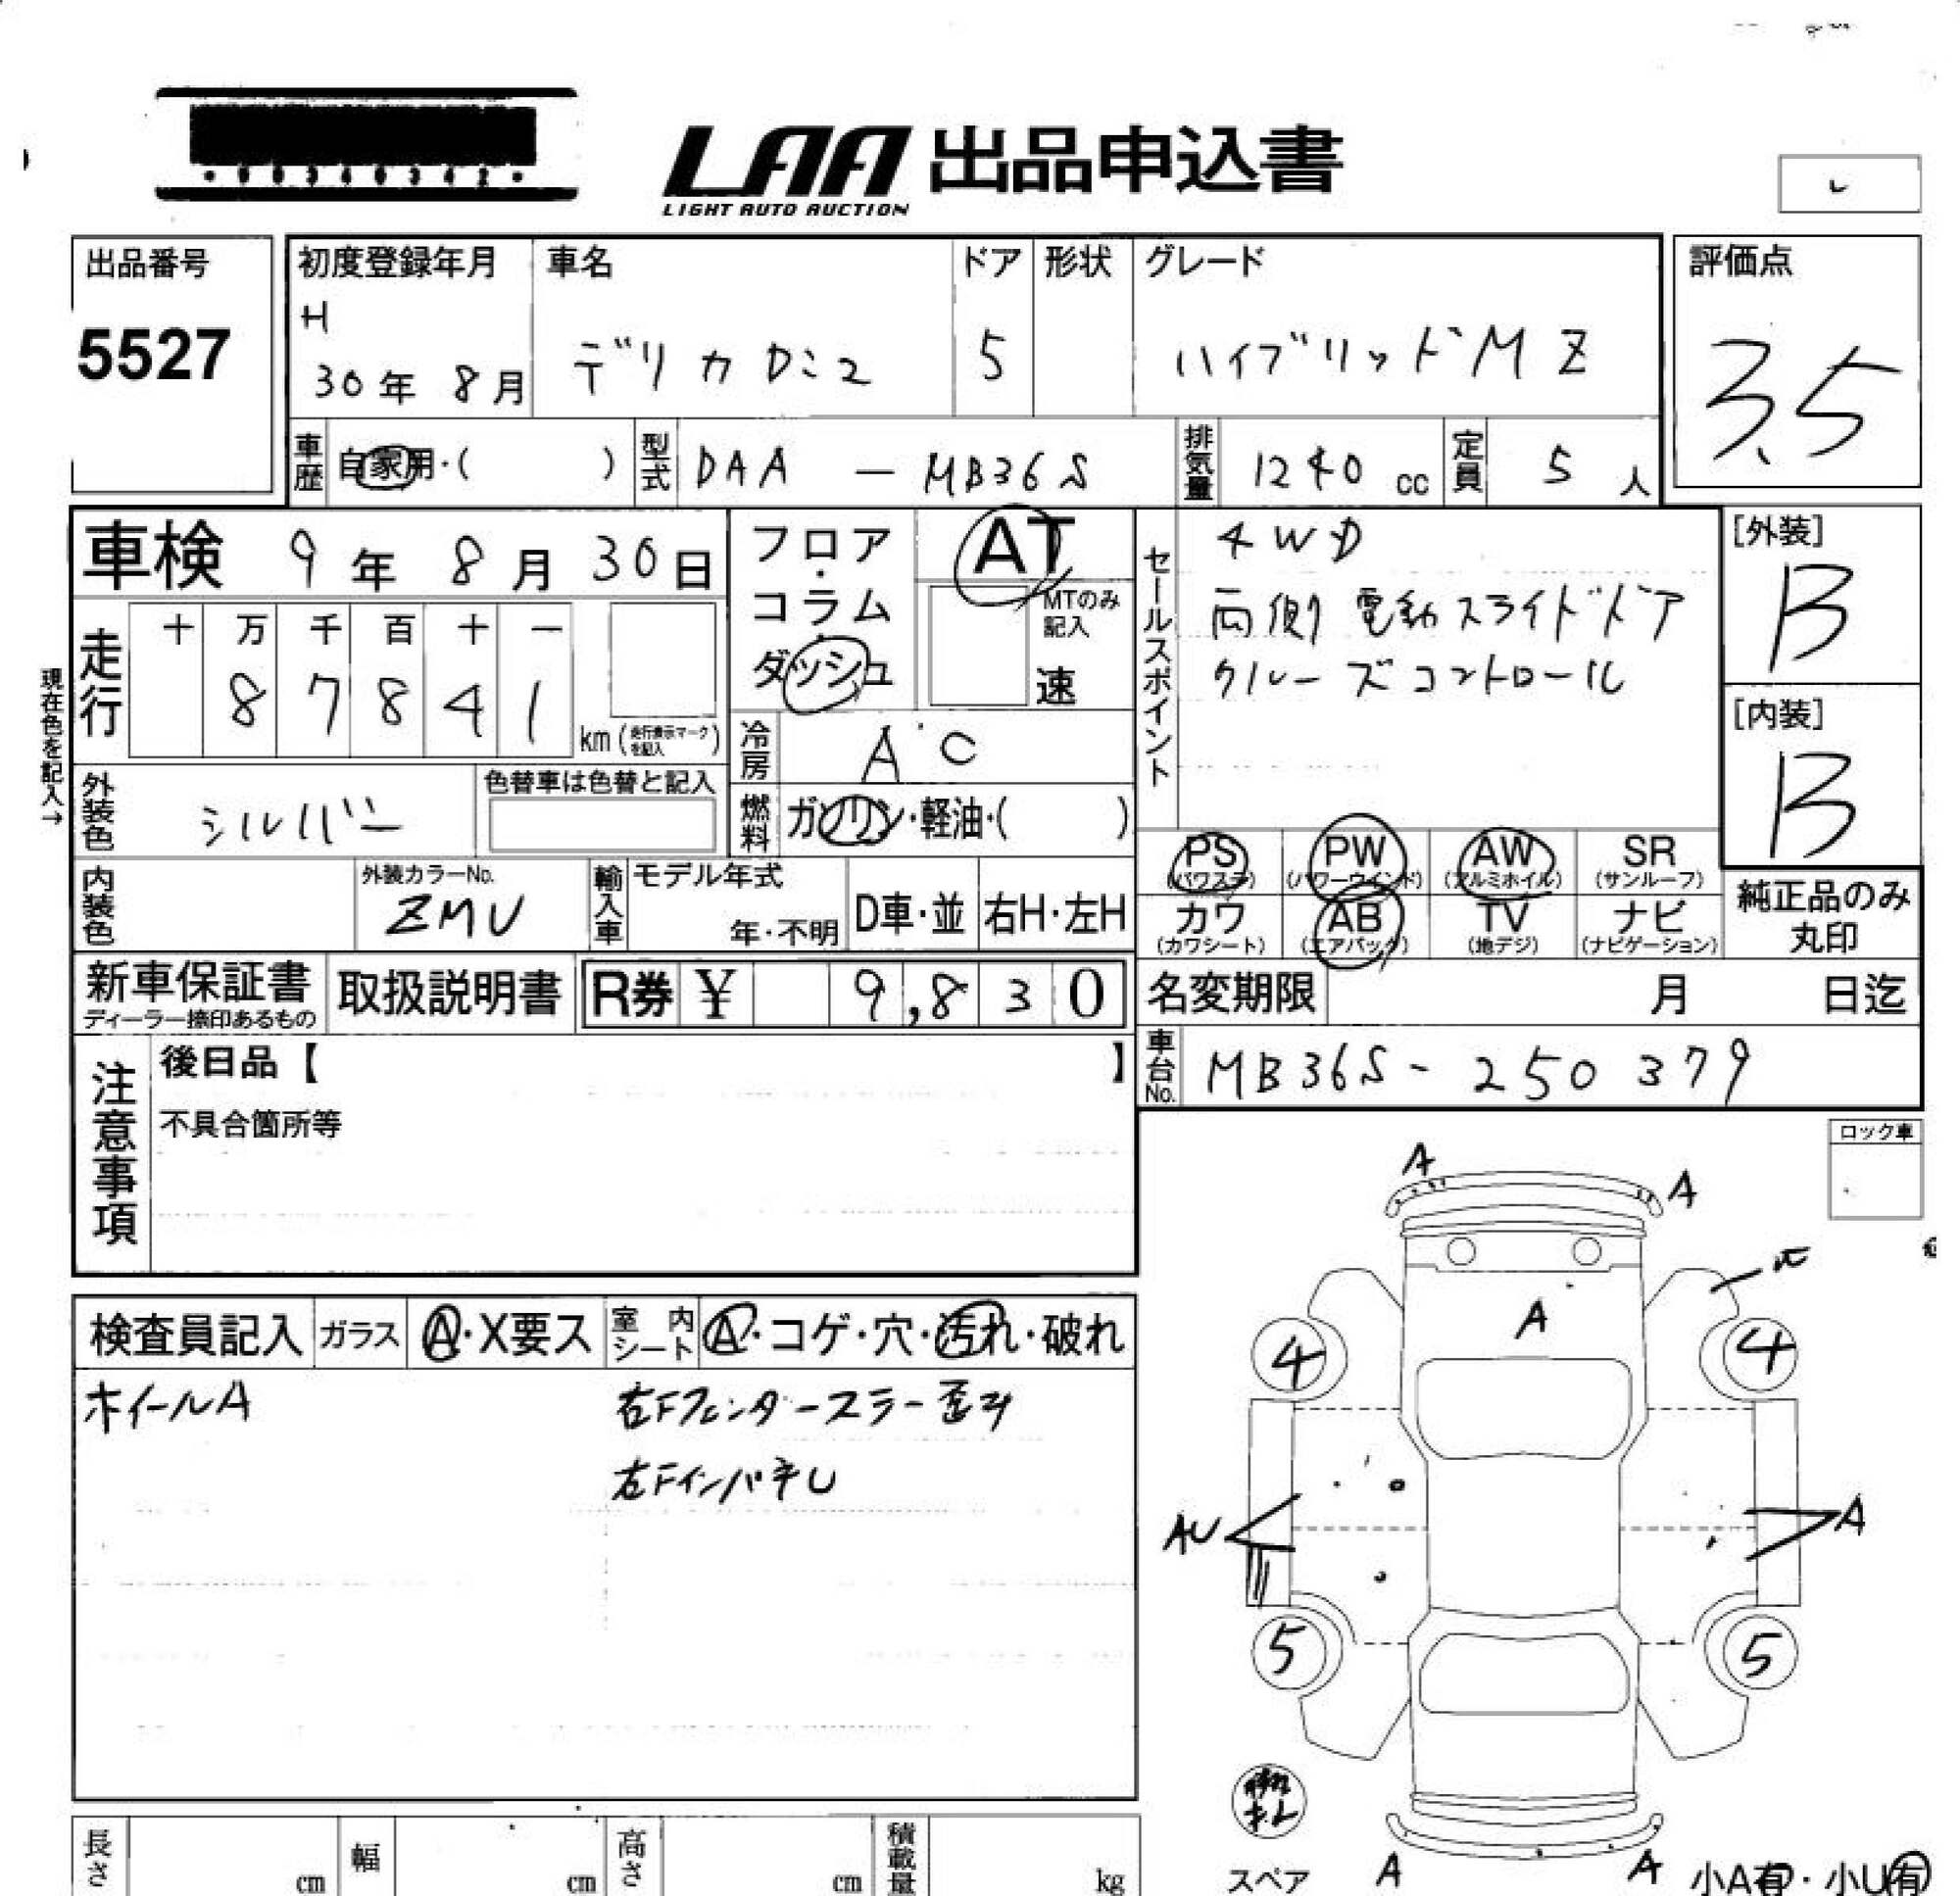 LAA 出品申込書
LIGHT AUTO AUCTION
出品番号
5527
初度登録年月
H
30年 8月
車名
デリカD:2
ドア
5
形状
グレード
ハイブリッドMZ
評価点
3.5
車歴
自家用・( )
型式
DAA - MB36S
排気量
1240 cc
定員
5 人
車検 9年 8月 30日
フロア・コラム・ダッシュ
AT
MTのみ記入
速
セールスポイント
4WD
両側電動スライドドア
クルーズコントロール
[外装]
B
[内装]
B
現在色を記入→
走行
十 万 千 百 十 一
8 7 8 4 1
km (走行表示マークを記入)
冷房
AC
燃料
ガソリン・軽油・( )
外装色
シルバー
色替車は色替と記入
内装色
外装カラーNo.
ZMU
輸入車
モデル年式
年・不明
D車・並
右H・左H
PS (パワステ)
PW (パワーウインド)
AW (アルミホイル)
SR (サンルーフ)
カワ (カワシート)
AB (エアバック)
TV (地デジ)
ナビ (ナビゲーション)
純正品のみ
丸印
新車保証書
ディーラー捺印あるもの
取扱説明書
R券 ¥ 9,830
名変期限 月 日迄
車台No.
MB36S-250379
注意事項
後日品【 】
不具合箇所等
ロック車
検査員記入
ガラス
A・X要ス
室内シート
A・コゲ・穴・汚れ・破れ
ホイールA
右Fフェンダーステー歪み
左Fインパネし
A
A
A
4
4
AU
A
5
5
スペア
A
A
小A有・小U有
長さ cm
幅 cm
高さ cm
積載量 kg